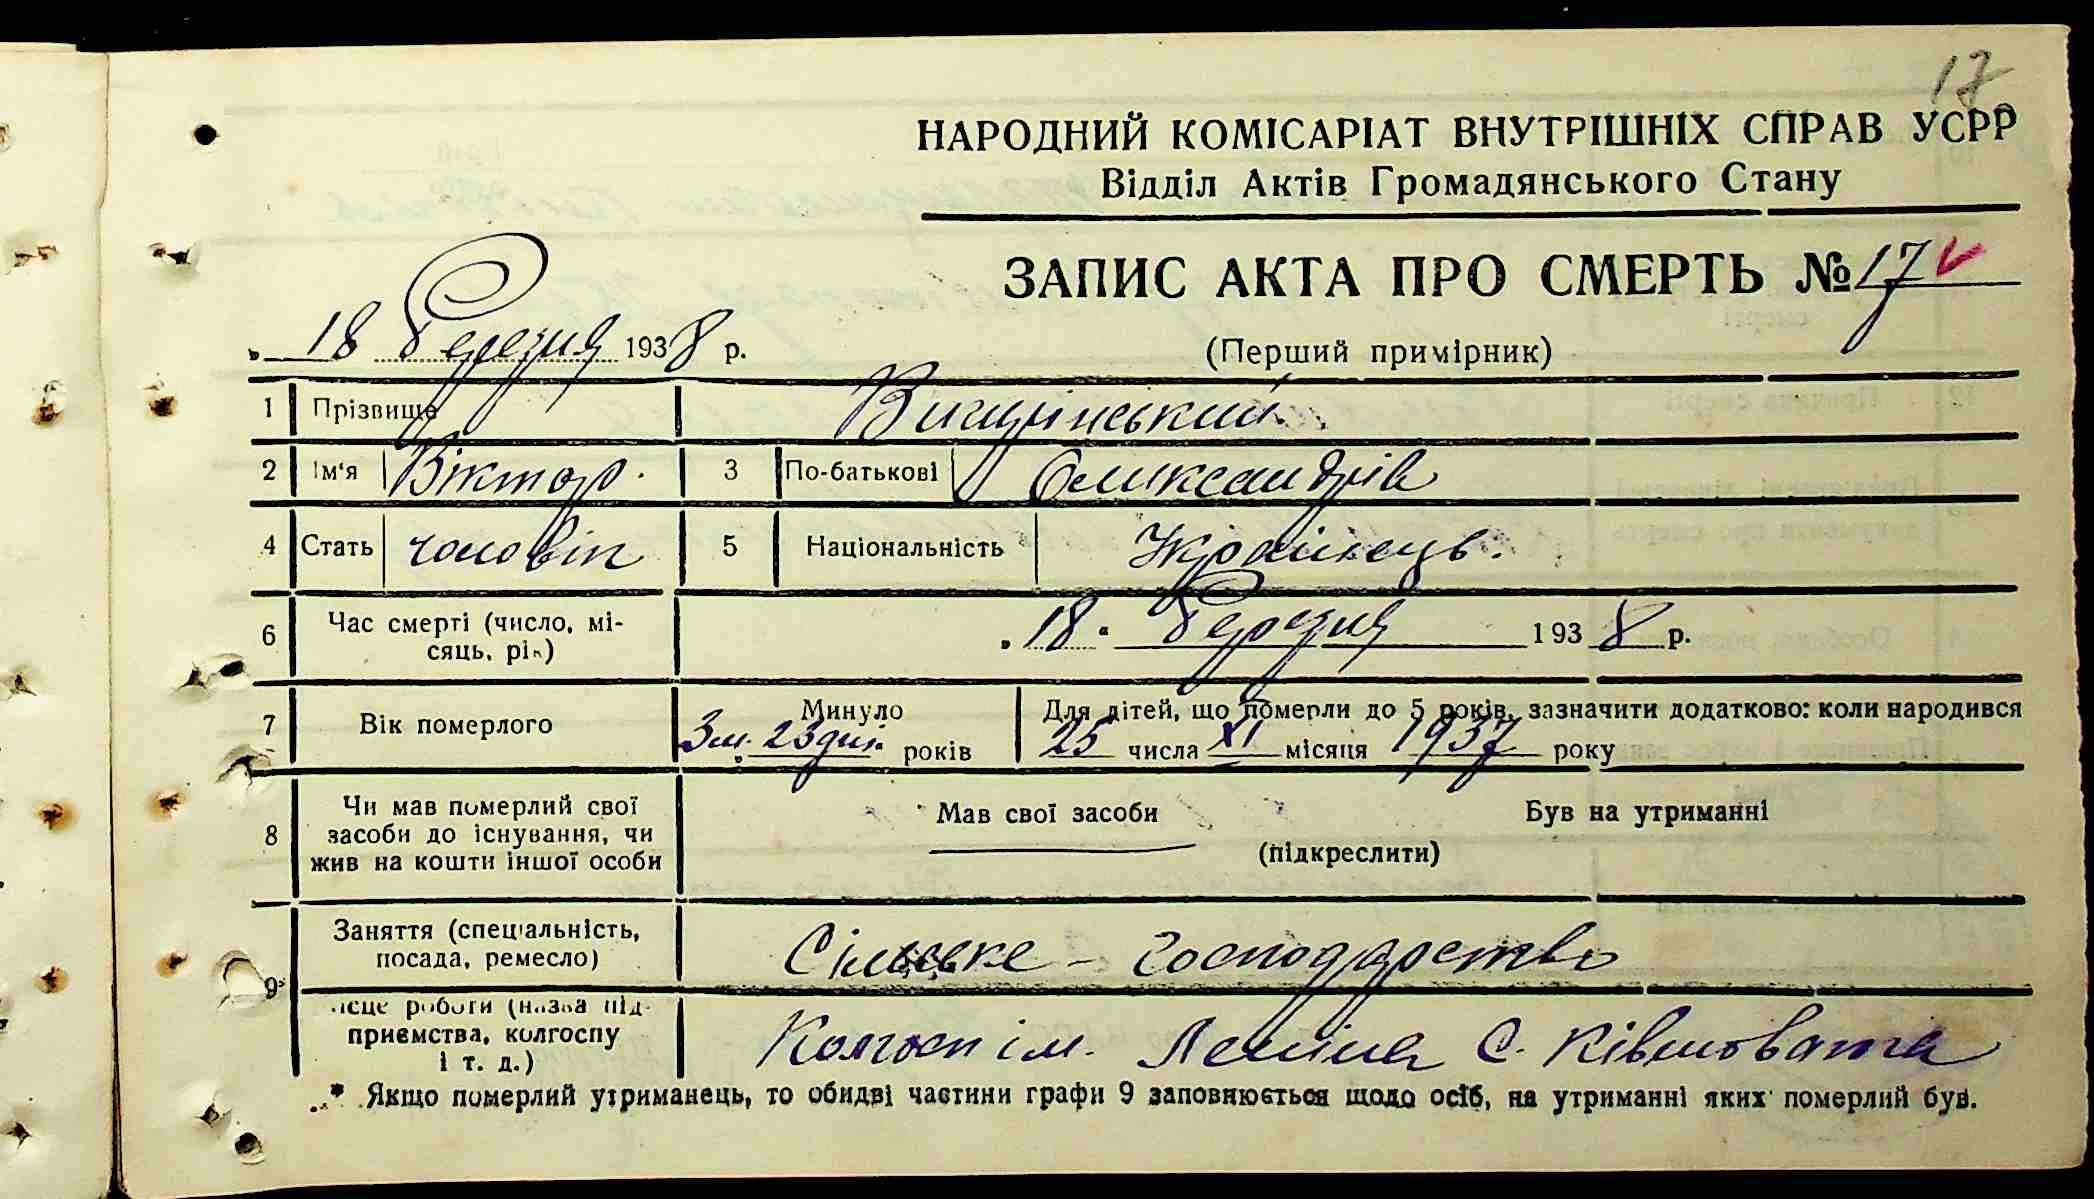 17
НАРОДНИЙ КОМІСАРІАТ ВНУТРІШНІХ СПРАВ УСРР
Відділ Актів Громадянського Стану
ЗАПИС АКТА ПРО СМЕРТЬ № 17
„ 18 Березня 1938 р.
(Перший примірник)
1 Прізвище
2 Ім'я Віктор. 3 По-батькові Олександрів
4 Стать чоловік 5 Національність Українець.
6 Час смерті (число, мі-
сяць, рік) „18" Березня 1938 р.
7 Вік померлого Минуло 3 м. 23 дні. років Для дітей, що померли до 5 років, зазначити додатково: коли народився
25 числа XI місяця 1937 року
8 Чи мав померлий свої
засоби до існування, чи
жив на кошти іншої особи
Мав свої засоби Був на утриманні
(підкреслити)
9 Заняття (спеціальність,
посада, ремесло) Сільське - господарство
місце роботи (назва під-
приємства, колгоспу
і т. д.) Колгосп ім. Леніна С. Ківшовата
* Якщо померлий утриманець, то обидві частини графи 9 заповнюється щодо осіб, на утриманні яких померлий був.